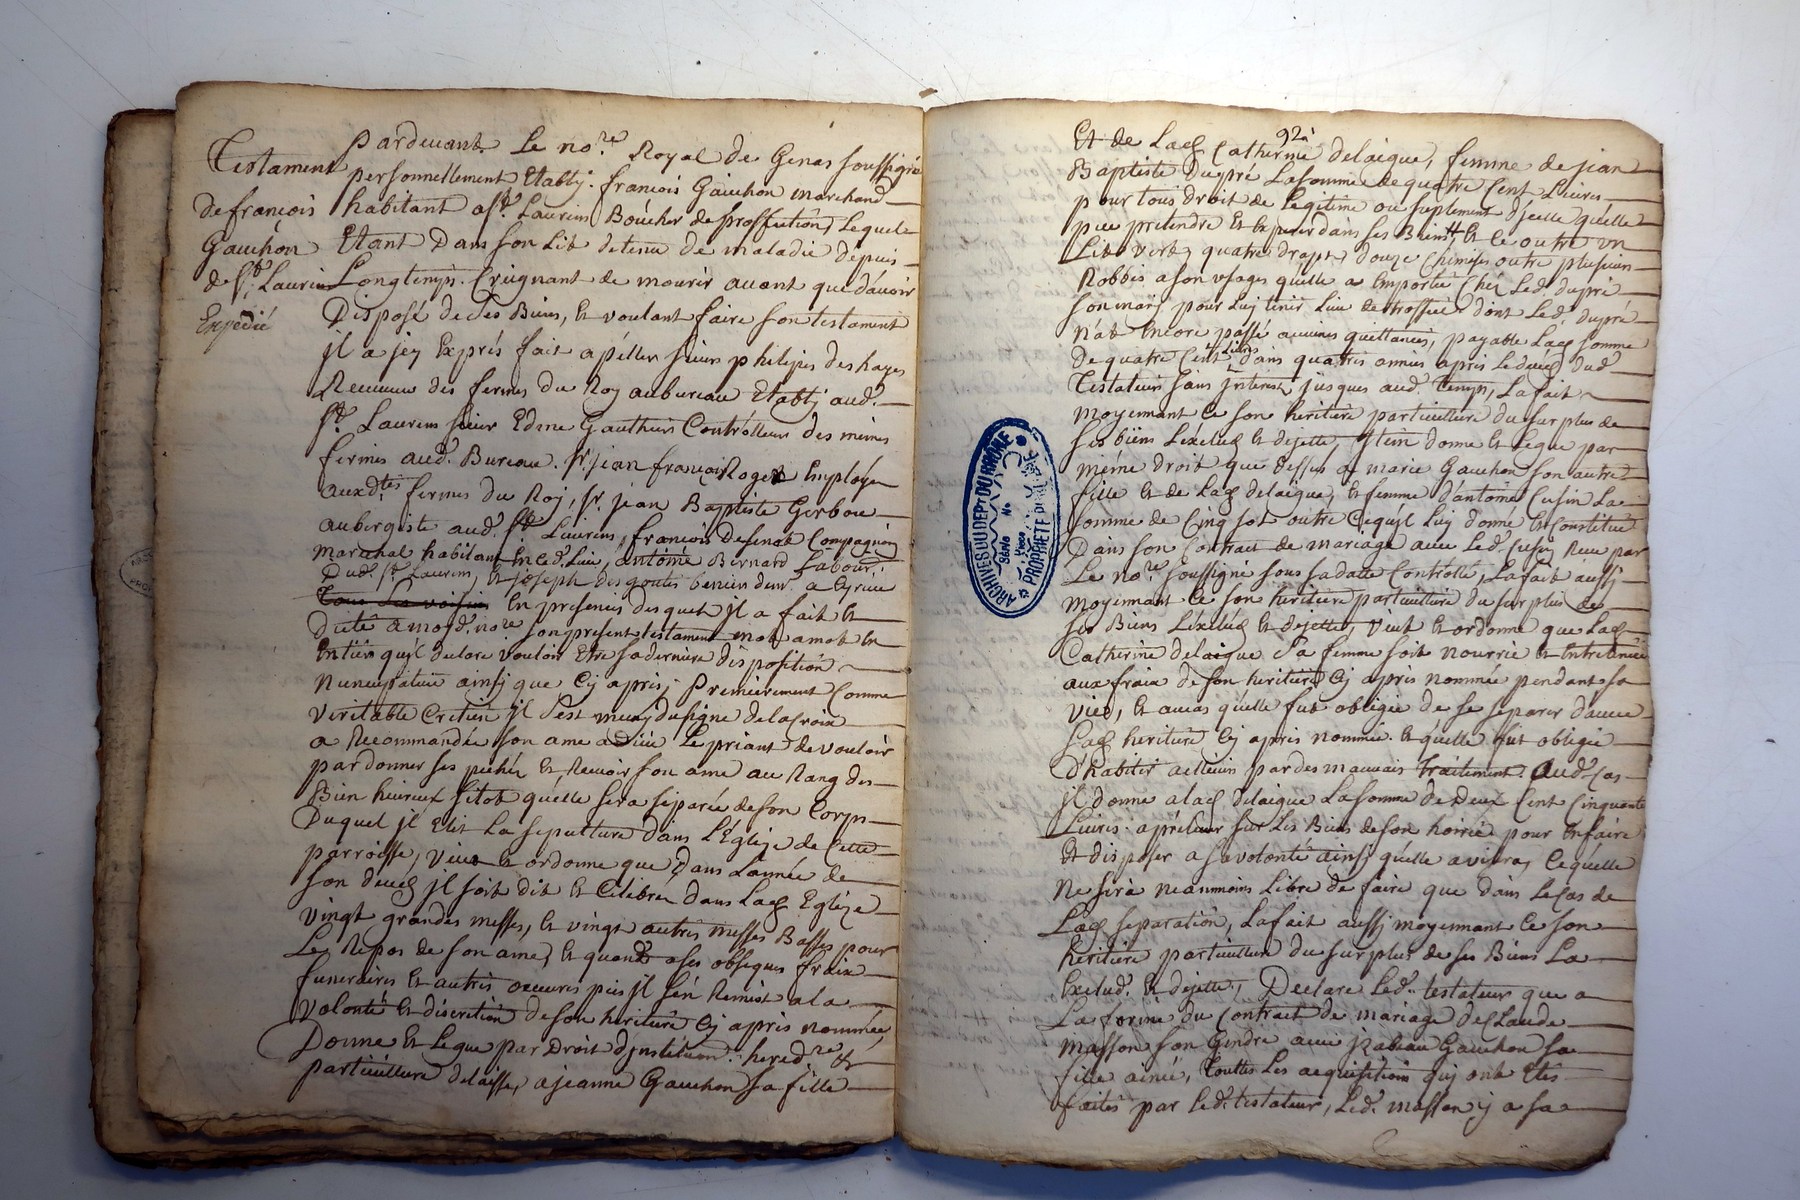 Testament
de francois
Gauchon
de St. Laurin
Expedié
Pardeuant Le nore. Royal de Genas soussigné
personnellement Etably francois Gauchon marchand
habitant a St. Laurins Boucher de proffession, Lequel
Etant Dans son Lit detenu de maladie depuis
Longtemps Creignant de mourir auant que dauoir
Disposé de ses Biens, et voulant faire son testament
jl a jcy Exprés fait apéller sieurs philipes deshayes
Receueur des fermes du Roy au bureau Etably aud.
St. Laurens sieur Edme Gauthier Contrôlleur des mémes
fermes aud. Bureau. Sr. jean francois Roger Employé
auxdtes fermes du Roy, Sr. jean Baptiste Gerbou
aubergiste aud. St. Laurins, francois desenat Compagnon
maréchal habitant En Ced. Lieu, antoine Bernard Labour.
Dud. St. Laurens, et joseph desgoutes
En presences desquels jl a fait et
dicté a mond. nore son present testament mot a mot et
Entier quyl declare vouloir Etre sa derniere disposition
Nuncupatiue ainsy que Cy apres, Premierement Comme
Veritable Cretien jl s'est muny du signe de la Croix
a Recommandée son ame a Dieu Le priant de vouloir
pardonner ses pechés et Receuoir son ame au Rang des
Bien heureux sitot qu'elle sera séparée de son Corps
Duquel jl Elit La sepulture dans L'Eglize de Cette
parroisse, Veut et ordonne que Dans L'année de
son deces jl soit dit et Celebrer dans Lad. Eglize
vingt grandes messes, et vingt autres messes Basses pour
Le Repos de son ame, et quand a ses obseques fraix
funeraires et autres oeuures pies jl s'en Remest a la
volonté et discretion de son heritiere Cy apres nommée,
Donne et Legue par Droit d'jnstitution heredre &
particulliere delaisse, a jeanne Gauchon sa fille
92.
Et de Lad. Catherine delaigue, femme de jean
Baptiste Dupré La somme de quatre Cent Liures
pour tous droit de Legitime ou suplement d'jcelle qu'elle
peu prétendre et Exiger dans ses Biens, Et Ce outre un
Lit vert, quatre draps, douze Chemises outre plusieurs
Robbes a son usages qu'elle a Emportée Chez Led. dupré
son mary pour Luy tenir Lieu de trossier dont Led. dupré
n'at Encore passé aucunes quittances, payable Lad. somme
de quatre Cent Liures dans quatres années apres Le deces dud.
Testateur sans jnterest jusques aud. temps, La fait
moyennant Ce son heritiere particulliere du surplus de
ses biens L'exclud et dejette, jtem donne et Legue par
méme droit que dessus a marie Gauchon son autre
fille et de Lad. delaigue, et femme d'antoine Cusin La
somme de Cinq sol outre Ce quyl Luy donné et Constitué
Dans son Contract de mariage auec Led. Cusin Receu par
Le nore. soussigné sous sa datte Contrôllé, La fait aussy
moyennant Ce son heritiere particulliere du surplus de
ses Biens L'exclud et dejette, veut et ordonne que Lad.
Catherine delaigue Sa femme soit nourrie et Entretenue
aux fraix de son heritiere Cy après nommée pendant sa
vie, et au cas qu'elle fut obligée de se separer dauec
Lad. heritiere Cy apres nommée et qu'elle fut obligée
D'habiter ailleurs par des mauuais traitement. aud. Cas
jl donne a lad. delaigue La somme de Deux Cent Cinquante
Liures a préleuer sur Les Biens de son hoirie pour En faire
et disposer a sa volonté ainsi qu'elle auisera, Ce qu'elle
ne sera neanmoins Libre de faire que dans Le Cas de
Lad. separation, La fait aussy moyennant Ce son
heritiere particulliere du surplus de ses Biens La
Exclud. et dejette, Declare Led. testateur que a
La forme du Contract de mariage de Claude
masson son Gendre auec jzabeau Gauchon sa
fille ainée, touttes Les acquisitions quy ont Etés
faites par Led. testateur, Led. masson y a sa
ARCHIVES DU DEPT DU RHONE
Série
No
Pièce
PROPRIÉTÉ PUBLIQUE